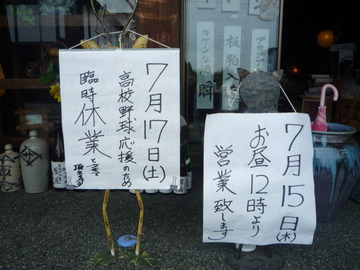 7月17日(土)
高校野球応援のため
臨時休業とさせて
頂きます
7月15日(木)
お昼12時より
営業致します